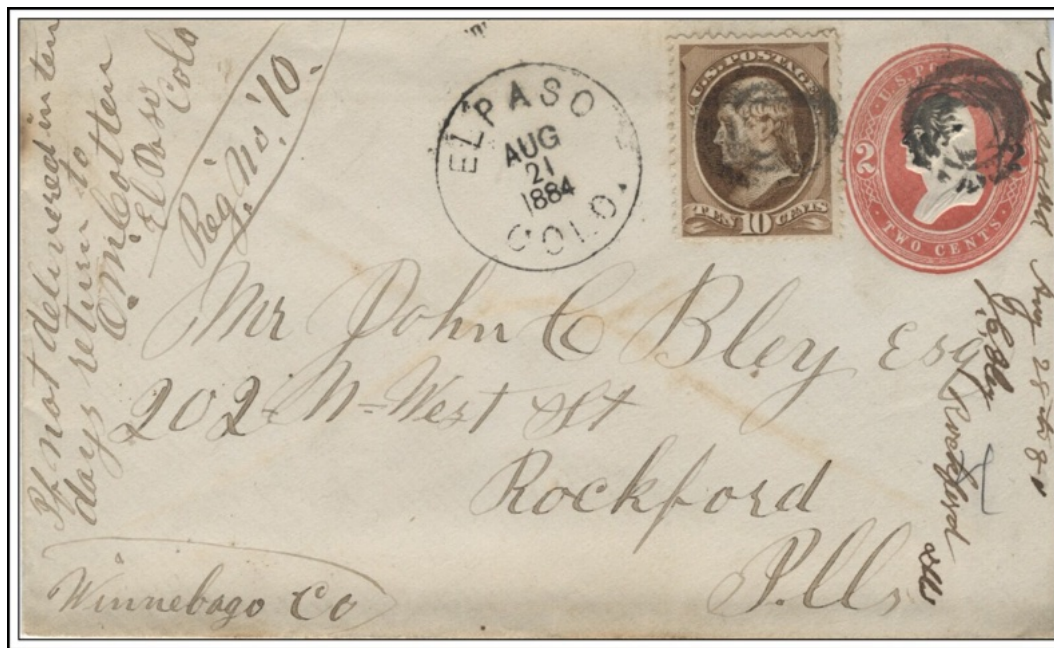 If not delivered in ten
days return to
O. M. Cotten
El Paso
Colo
Reg. No. '10.
EL PASO
AUG
21
1884
COLO.
U.S. POSTAGE
TEN 10 CENTS
U.S. PO
2 2
TWO CENTS
Mr John C Bley Esq
202 N-West St
Rockford
Ills
Winnebago Co
Aug 28th 84
J C Bley
Rockford
Ills